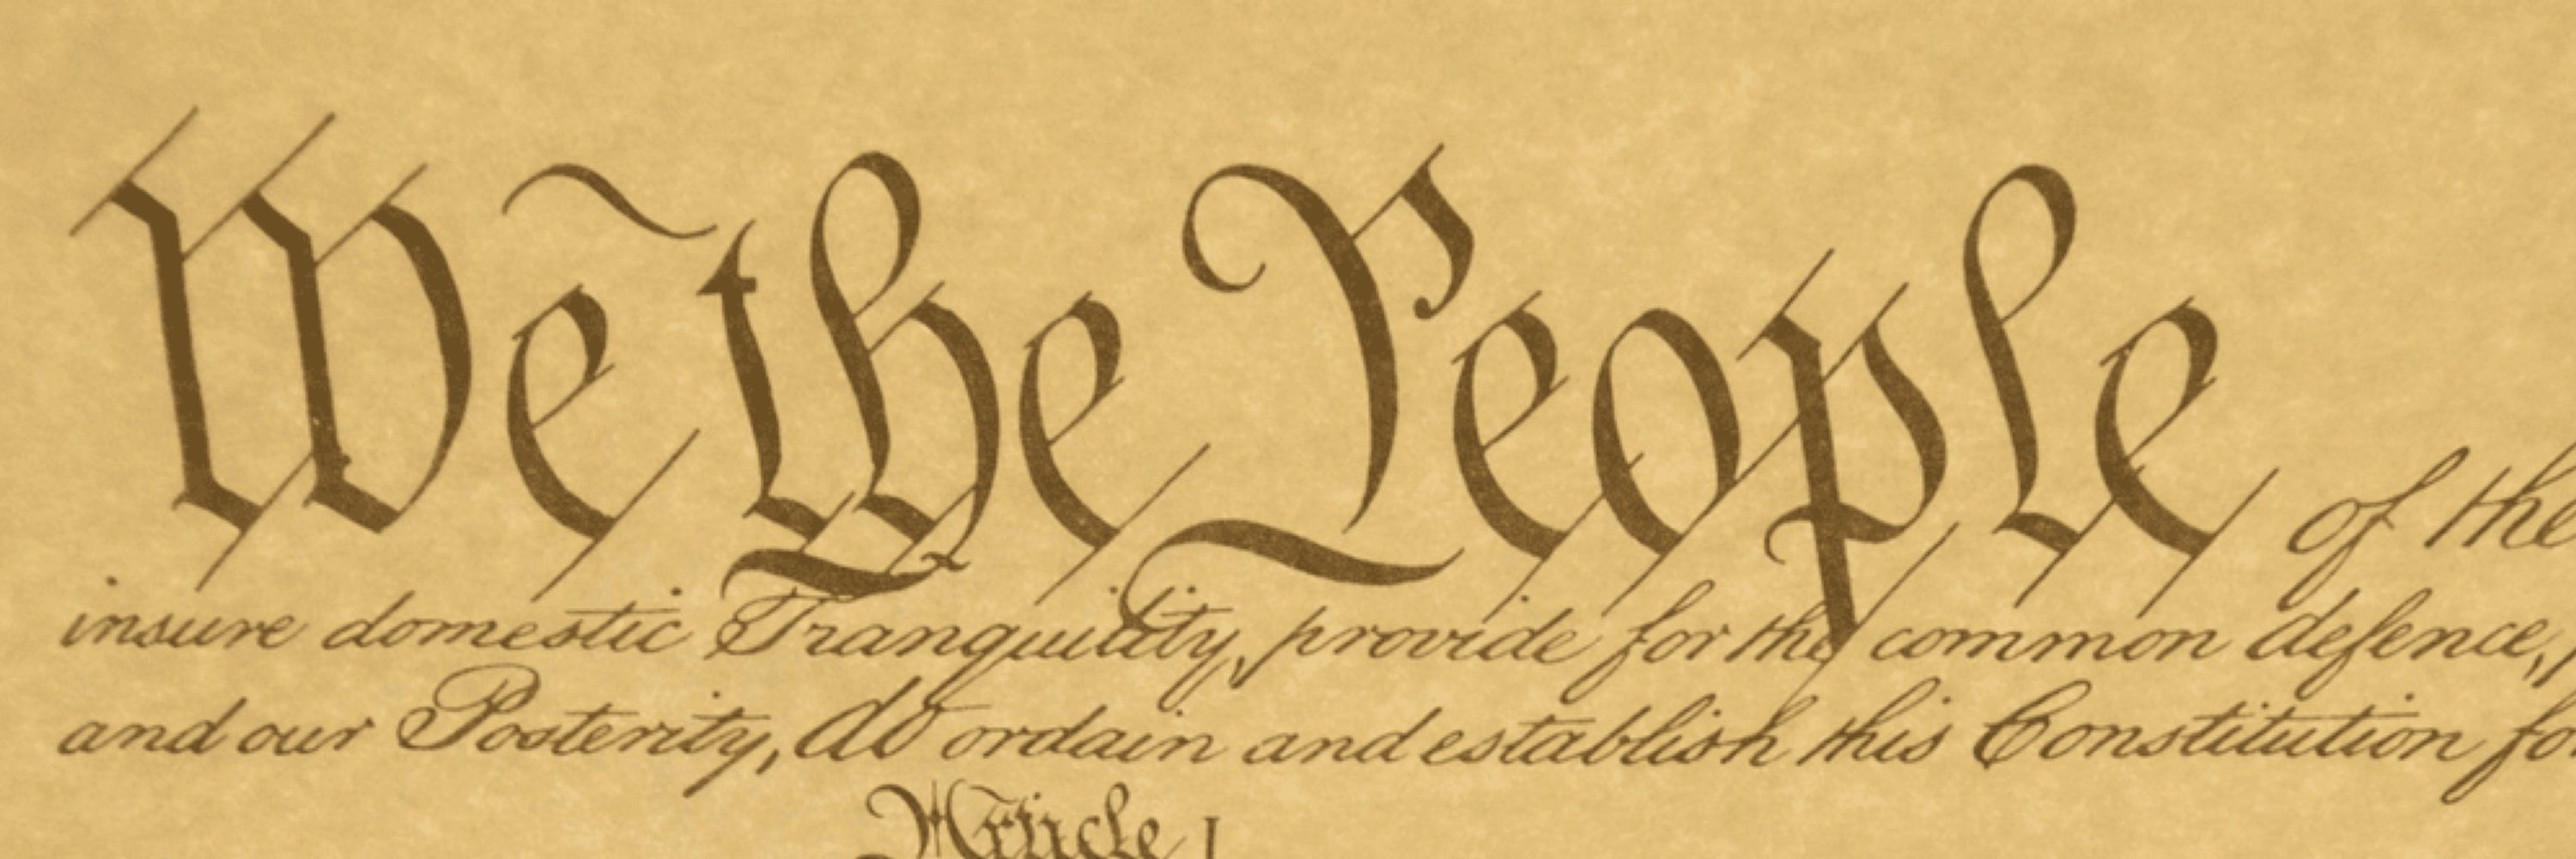 We the People of the
insure domestic Tranquility, provide for the common defence,
and our Posterity, do ordain and establish this Constitution fo
Article I